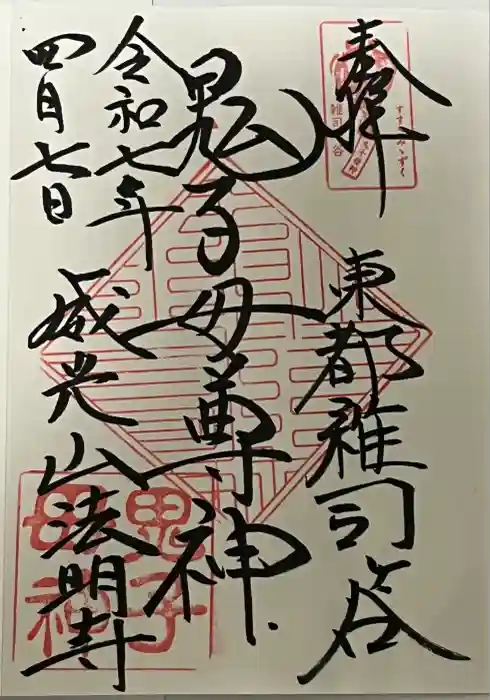 奉拝
東都雑司谷
鬼子母尊神
令和七年
四月七日
威光山法明寺
すすきみゝずく
雑司谷
鬼子母神